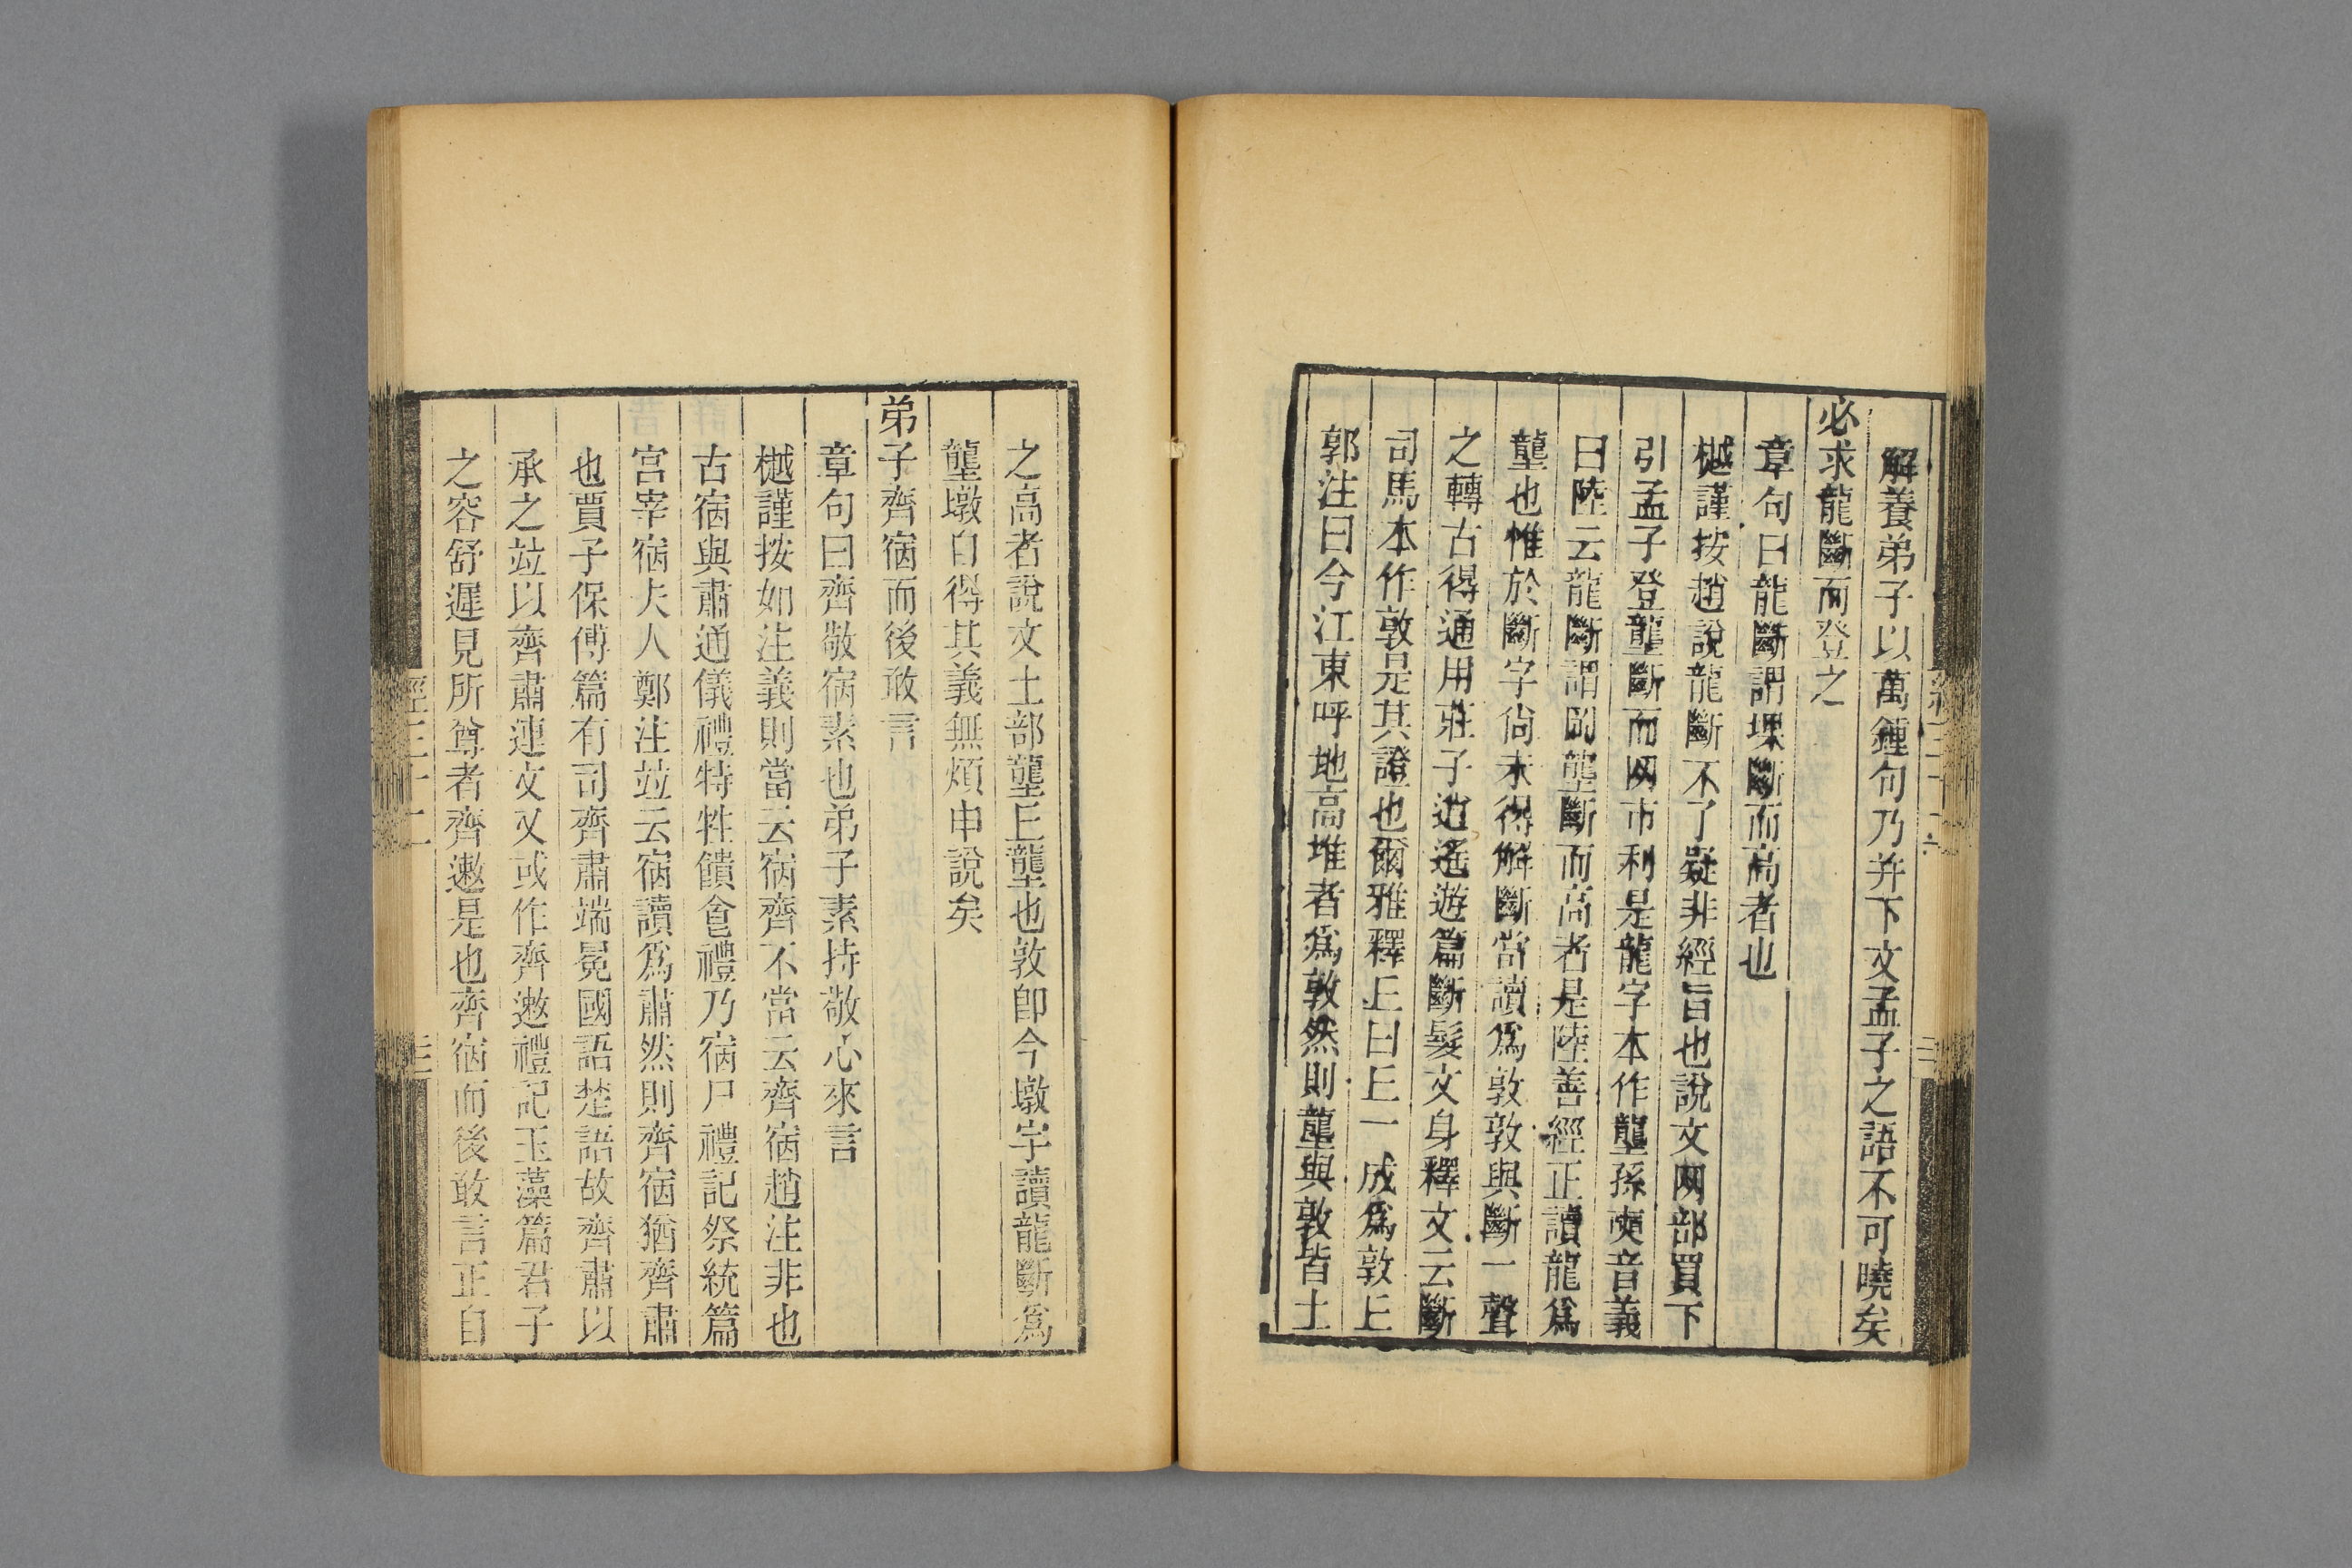 解養弟子以萬鍾句乃并下文孟子之語不可曉矣
必求龍斷而登之
章句曰龍斷謂堁斷而高者也
樾謹按趙說龍斷不了疑非經旨也說文网部買下
引孟子登壟斷而网市利是龍字本作壟孫奭音義
曰陸云龍斷謂岡壟斷而高者是陸善經正讀龍爲
壟也惟於斷字尙未得解斷當讀爲敦敦與斷一聲
之轉古得通用莊子逍遙遊篇斷髮文身釋文云斷
司馬本作敦是其證也爾雅釋丘曰丘一成爲敦丘
郭注曰今江東呼地高堆者爲敦然則壟與敦皆土
之高者說文土部壟丘壟也敦卽今墩字讀龍斷爲
壟墩自得其義無煩申說矣
弟子齊宿而後敢言
章句曰齊敬宿素也弟子素持敬心來言
樾謹按如注義則當云宿齊不當云齊宿趙注非也
古宿與肅通儀禮特牲饋食禮乃宿尸禮記祭統篇
宮宰宿夫人鄭注竝云宿讀爲肅然則齊宿猶齊肅
也賈子保傅篇有司齊肅端冕國語楚語故齊肅以
承之竝以齊肅連文又或作齊遬禮記玉藻篇君子
之容舒遲見所尊者齊遬是也齊宿而後敢言正自
經三十二